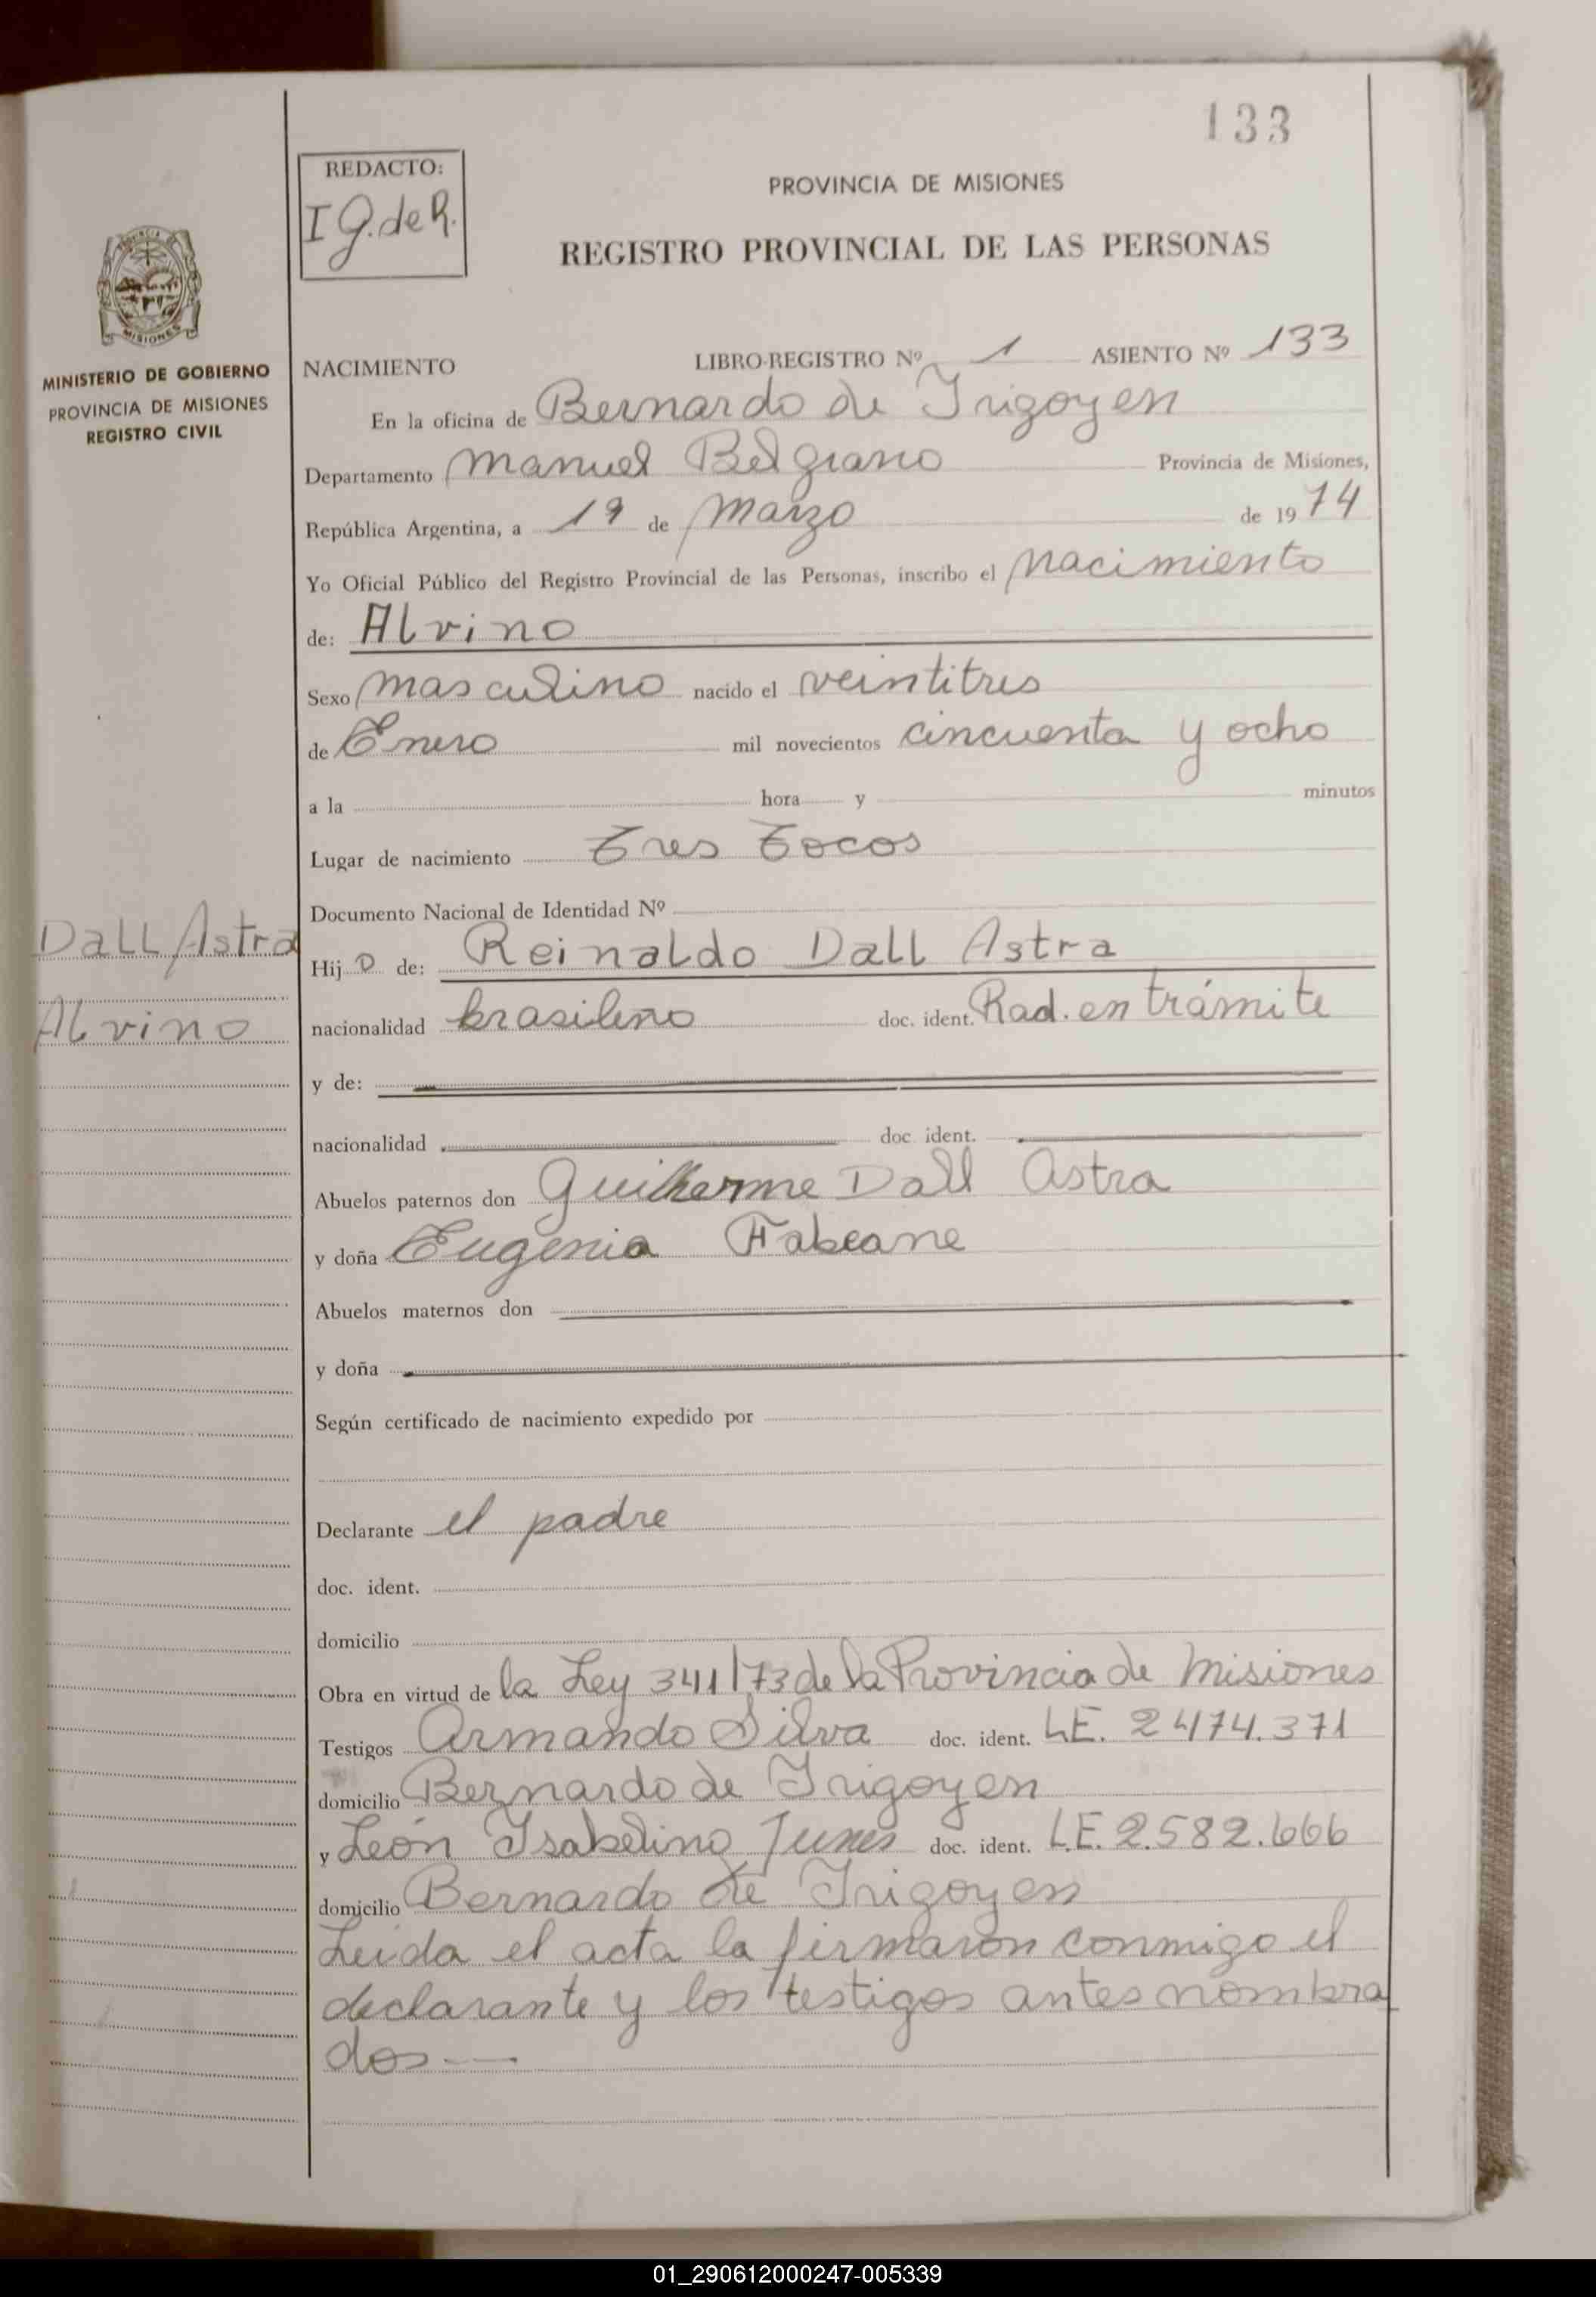 133
REDACTO:
I G. de R.
PROVINCIA DE MISIONES
REGISTRO PROVINCIAL DE LAS PERSONAS
PROVINCIA
MISIONES
MINISTERIO DE GOBIERNO
PROVINCIA DE MISIONES
REGISTRO CIVIL
NACIMIENTO LIBRO-REGISTRO Nº 1 ASIENTO Nº 133
En la oficina de Bernardo de Irigoyen
Departamento Manuel Belgrano Provincia de Misiones,
República Argentina, a 19 de Marzo de 1974
Yo Oficial Público del Registro Provincial de las Personas, inscribo el nacimiento
de: Alvino
Sexo masculino nacido el veintitres
de Enero mil novecientos cincuenta y ocho
a la hora y minutos
Lugar de nacimiento Tres Tocos
Documento Nacional de Identidad Nº
Dall Astra
Alvino
Hijo de: Reinaldo Dall Astra
nacionalidad brasileño doc. ident. Rad. en trámite
y de:
nacionalidad doc. ident.
Abuelos paternos don Guilherme Dall Astra
y doña Eugenia Fabeane
Abuelos maternos don
y doña
Según certificado de nacimiento expedido por
Declarante el padre
doc. ident.
domicilio
Obra en virtud de la Ley 341/73 de la Provincia de Misiones
Testigos Armando Silva doc. ident. L.E. 2474.371
domicilio Bernardo de Irigoyen
y León Isabelino doc. ident. L.E. 2.582.666
domicilio Bernardo de Irigoyen
Leida el acta la firmaron conmigo el
declarante y los testigos antes nombra
dos —
01_290612000247-005339